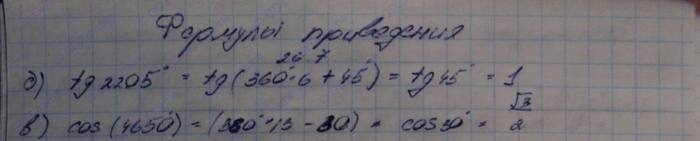 Формулы приведения
26 7
д) tg 2205° = tg(360°·6 + 45°) = tg 45° = 1
в) cos(4650°) = (360°·13 - 30) = cos 30° = √3/2